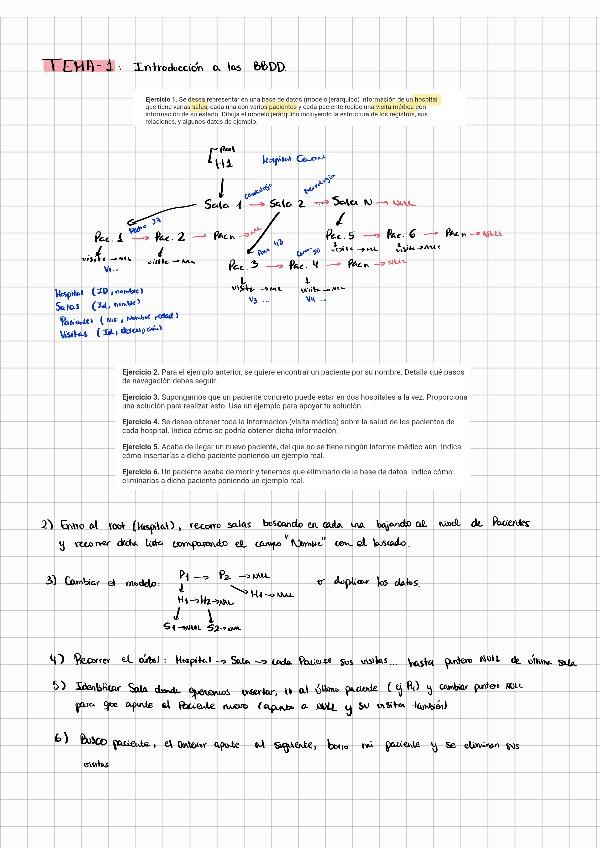 TEMA-1: Introducción a las BBDD.
Ejercicio 1. Se desea representar en una base de datos (modelo jerárquico) información de un hospital
que tiene varias salas, cada una con varios pacientes y cada paciente recibe una visita médica con
información de su estado. Dibuja el modelo jerárquico incluyendo la estructura de los registros, sus
relaciones, y algunos datos de ejemplo.
Root
H1 Hospital Central
cardiología neurología
Sala 1 → Sala 2 → Sala N → NULL
Pac. 1 → Pac. 2 → Pac n → NULL
Pac. 5 → Pac. 6 → Pac n → NULL
visita → NULL visita → NULL
visita → NULL visita → NULL
V1...
Pac. 3 → Pac. 4 → Pac n → NULL
visita → NULL visita → NULL
V3 ... V4 ...
Hospital (ID, nombre)
Salas (Id, nombre)
Pacientes (NIF, Nombre, edad)
Visitas (Id, descripción)
Ejercicio 2. Para el ejemplo anterior, se quiere encontrar un paciente por su nombre. Detalla qué pasos
de navegación debes seguir.
Ejercicio 3. Supongamos que un paciente concreto puede estar en dos hospitales a la vez. Proporciona
una solución para realizar esto. Usa un ejemplo para apoyar tu solución.
Ejercicio 4. Se desea obtener toda la información (visita médica) sobre la salud de los pacientes de
cada hospital. Indica cómo se podría obtener dicha información.
Ejercicio 5. Acaba de llegar un nuevo paciente, del que no se tiene ningún informe médico aún. Indica
cómo insertarías a dicho paciente poniendo un ejemplo real.
Ejercicio 6. Un paciente acaba de morir y tenemos que eliminarlo de la base de datos. Indica cómo
eliminarías a dicho paciente poniendo un ejemplo real.
2) Entro al root (Hospital), recorro salas buscando en cada una bajando al nivel de Pacientes
y recorrer dicha lista comparando el campo "Nombre" con el buscado.
3) Cambiar el modelo: P1 → P2 → NULL o duplicar los datos.
H1 → H2 → NULL H1 → NULL
S1 → NULL S2 → NULL
4) Recorrer el árbol: Hospital → Sala → cada Paciente sus visitas... hasta puntero NULL de última sala
5) Identificar Sala donde queremos insertar, ir al último paciente (ej P2) y cambiar puntero NULL
para que apunte al Paciente nuevo (apunta a NULL y su visita también)
6) Busco paciente, el anterior apunte al siguiente, borro mi paciente y se eliminan sus
visitas